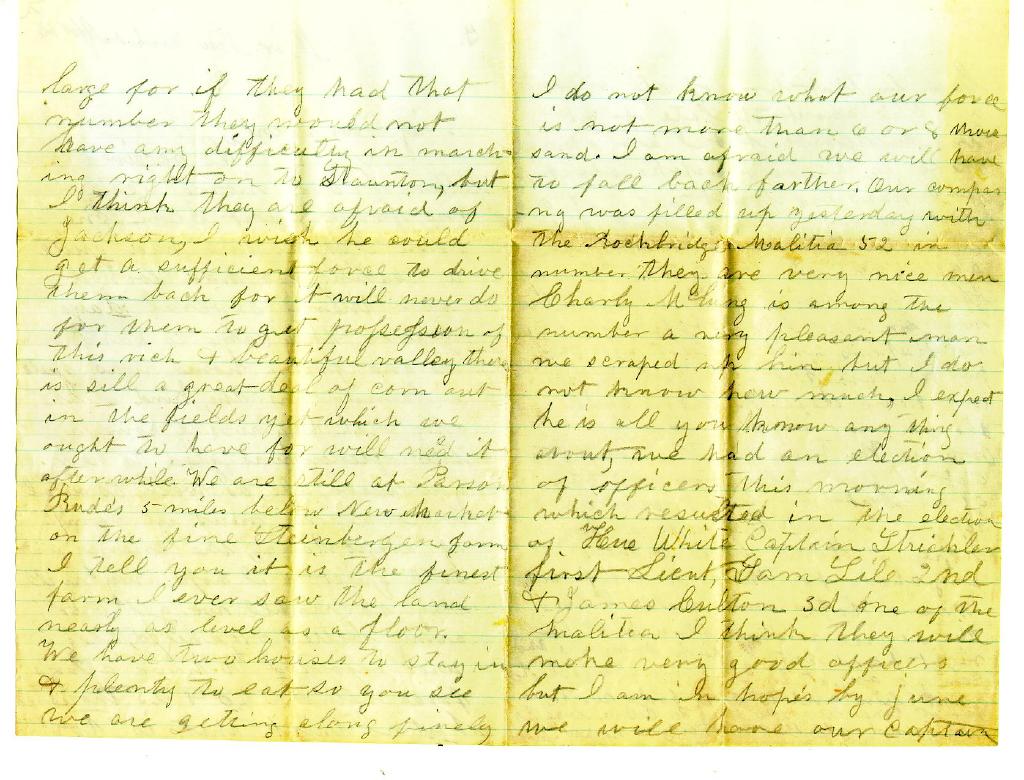 large for if they had that
number they would not
have any difficulty in march-
ing right on to Staunton, but
I think they are afraid of
Jackson, I wish he could
get a sufficient force to drive
them back for it will never do
for them to get possession of
this rich & beautiful valley there
is sill a great deal of corn out
in the fields yet which we
ought to have for will need it
after while We are still at Parson
Rude's 5 miles below New Market
on the fine Steinbergen farm
I tell you it is the finest
farm I ever saw the land
nearly as level as a floor.
We have two houses to stay in
& plenty to eat so you see
we are getting along finely
I do not know what our force
is not more than 6 or 8 thou
sand. I am afraid we will have
to fall back farther. Our compa
ny was filled up yesterday with
the Rockbridge Malitia 52 in
number they are very nice men
Charly McClung is among the
number a very pleasant man
we scraped kin but I do
not know how much, I expect
he is all you know any thing
about, we had an election
of officers this morning
which resulted in the election
of White Captain Strickler
first Lieut, Sam Lile 2nd
& James Culton 3d one of the
malitia I think they will
make very good officers
but I am in hopes by june
we will have our Captain